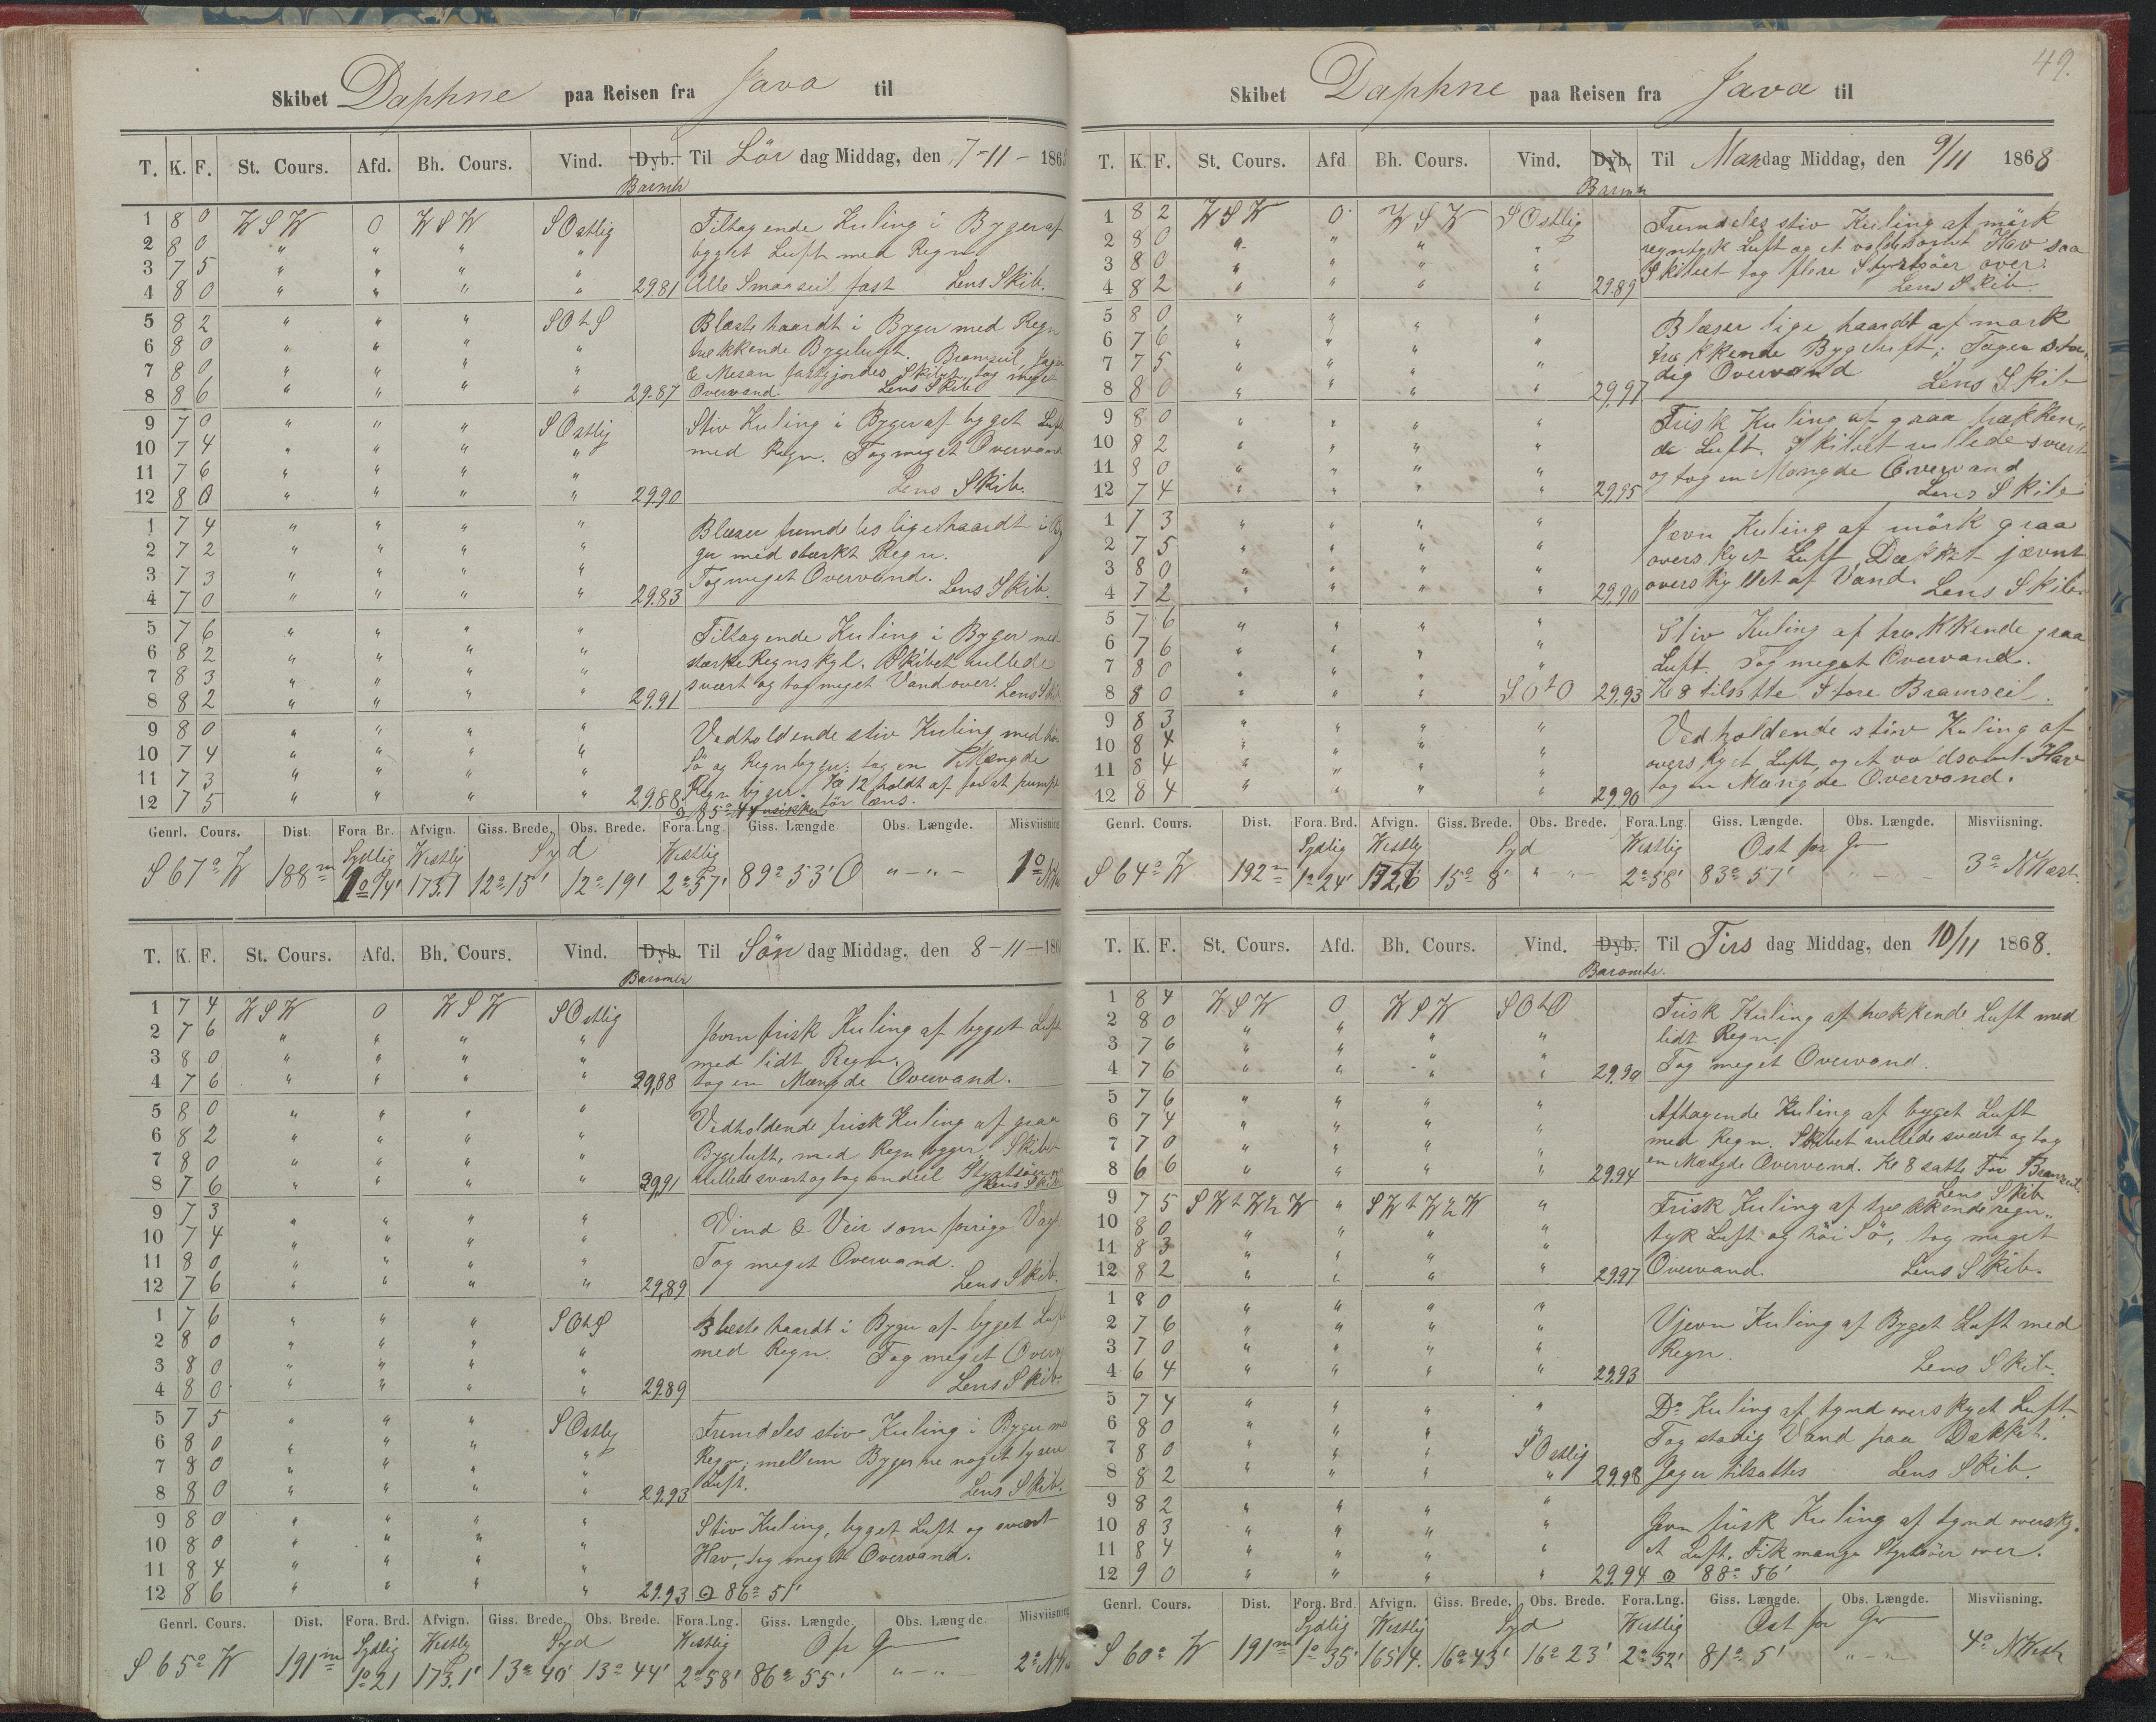 Skibet Daphne paa Reisen fra Java til
T. K. F. St. Cours. Afd. Bh. Cours. Vind. Dyb. Til Lör dag Middag, den 7-11- 186
Barmtr
1 8 0 WSW 0 WSW SOstlig Tiltagende Kuling i Byger af
2 8 0 " " " " bygget Luft med Regn
3 7 5 " " " "
4 8 0 " " " " 29.81 Alle Smaaseil fast Lens Skib.
5 8 2 " " " SOtS Blæste haardt i Byger med Regn
6 8 0 " " " " trækkende Bygeluft. Bramseil, Jager
7 8 0 " " " " & Mesan fastgjordes Skibet tog meget
8 8 6 " " " " 29.87 Overvand. Lens Skib
9 7 0 " " " SOstlig Stiv Kuling i Byger af byget Luft
10 7 4 " " " " med Regn. Tog meget Overvand
11 7 6 " " " "
12 8 0 " " " " 29.90 Lens Skib.
1 7 4 " " " " Blæser fremdeles lige haardt i By
2 7 2 " " " " ger med stærkt Regn.
3 7 3 " " " " Tog meget Overvand.
4 7 0 " " " " 29.83 Lens Skib.
5 7 6 " " " " Tiltagende Kuling i Byger med
6 8 2 " " " " stærke Regnskyl. Skibet rullede
7 8 3 " " " " svært og tog meget Vand over. Lens Skib
8 8 2 " " " " 29.91
9 8 0 " " " " Vedholdende stiv Kuling med höi
10 7 4 " " " " Sö og Regnbyger; tog en Mængde
11 7 3 " " " " Regn byger. Kl 12 holdt af for at pumpe
12 7 5 " " " " 29.88. för læns.
Genrl. Cours. Dist. Fora Br. Afvign. Giss. Brede. Obs. Brede. Fora.Lng. Giss. Længde Obs. Længde. Misviisning
Sydlig Westlig Syd Westlig
S 67° W 188m 1° 14' 173.1 12° 15' 12° 19' 2° 57' 89° 53' O " - " - 1° NW
T. K. F. St. Cours. Afd. Bh. Cours. Vind. Dyb. Til Sön dag Middag, den 8-11-186
Baromtr
1 7 4 WSW 0 WSW SOstlig Jævn frisk Kuling af bygget Luft
2 7 6 " " " "
3 8 0 " " " " med lidt Regn.
4 7 6 " " " " 29,88 tog en Mængde Overvand.
5 8 0 " " " " Vedholdende frisk Kuling af graa
6 8 2 " " " " Bygeluft, med Regnbyger. Skibet
7 8 0 " " " " rullede svært og tog endeel Styrtsöer over
8 7 6 " " " " 29,91 Lens Skib
9 7 3 " " " " Vind & Veir som forrige Vagt
10 7 4 " " " "
11 8 0 " " " " Tog meget Overvand.
12 7 6 " " " " 29,89 Lens Skib.
1 7 6 " " " SOtS Blæste haardt i Byger af byget Luft
2 8 0 " " " " med Regn. Tog meget Overv
3 8 0 " " " "
4 8 0 " " " " 29.89 Lens Skib.
5 7 5 " " " SOstlig Fremdeles stiv Kuling i Byger med
6 8 0 " " " " Regn; mellem Bygerne noget lysere
7 8 0 " " " " Luft.
8 8 0 " " " " 29.93 Lens Skib.
9 8 0 " " " " Stiv Kuling, bygget Luft og svært
10 8 0 " " " " Hav, tog meget Overvand.
11 8 4 " " " "
12 8 6 " " " " 29.93 ⊙ 86° 51'
Genrl. Cours. Dist. Fora. Brd. Afvign. Giss. Brede. Obs. Brede. Fora.Lng. Giss. Længde. Obs. Længde. Misviisning
Sydlig Westlig Syd Westlig O fr Gr
S 65° W 191m 1° 21 173.1' 13° 40' 13° 44' 2° 58' 86° 55' " - " 2° NW
49.
Skibet Daphne paa Reisen fra Java til
T. K. F. St. Cours. Afd Bh. Cours. Vind. Dyb. Til Mandag Middag, den 9/11 1868
Barmtr
1 8 2 WSW 0 WSW SOstlig Fremdeles stiv Kuling af mörk
2 8 0 " " " " regntyk Luft og et voldsomt Hav saa
3 8 0 " " " " Skibet tog flere Styrtsöer over.
4 8 2 " " " " 29.89 Lens Skib.
5 8 0 " " " " Blæser lige haardt af mörk
6 7 6 " " " " trækkende Bygeluft; Tager sta-
7 7 5 " " " " dig Overvand
8 8 0 " " " " 29,97 Lens Skib
9 8 0 " " " " Frisk Kuling af graa trækken-
10 8 2 " " " " de Luft. Skibet rullede svært
11 8 0 " " " " og tog en Mængde Overvand
12 7 4 " " " " 29,95 Lens Skib
1 7 3 " " " " Jævn Kuling af mörk graa
2 7 5 " " " " overskyet Luft, Dækket jævnt
3 8 0 " " " " overskyllet af Vand.
4 7 2 " " " " 29,90 Lens Skib
5 7 6 " " " " Stiv Kuling af trækkende graa
6 7 6 " " " " Luft. Tog meget Overvand.
7 8 0 " " " "
8 8 0 " " " SOtO 29,93 Kl 8 tilsatte Store Bramseil.
9 8 3 " " " " Vedholdende stiv Kuling af
10 8 4 " " " " overskyet Luft, og et voldsomt Hav
11 8 4 " " " " tog en Mængde Overvand.
12 8 4 " " " " 29,90
Genrl. Cours. Dist. Fora. Brd. Afvign. Giss. Brede. Obs. Brede. Fora.Lng. Giss. Længde. Obs. Længde. Misviisning.
Sydlig Westlig Syd Westlig Ost for Gr
S 64° W 192m 1° 24' 172,6 15° 8' " " - 2° 58' 83° 57' " - - 3° NWest.
T. K. F. St. Cours. Afd. Bh. Cours. Vind. Dyb. Til Tirs dag Middag, den 10/11 1868.
Baromtr.
1 8 4 WSW 0 WSW SOtO Frisk Kuling af trækkende Luft med
2 8 0 " " " " lidt Regn.
3 7 6 " " " "
4 7 6 " " " " 29.90 Tog meget Overvand.
5 7 6 " " " " Aftagende Kuling af byget Luft
6 7 4 " " " " med Regn. Skibet rullede svært og tog
7 7 0 " " " " en Mængde Overvand. Kl 8 satte For Bramseil.
8 6 6 " " " " 29.94 Lens Skib
9 7 5 SWtW½W " SWtW½W " Frisk Kuling af trækkende regn-
10 8 0 " " " " tyk Luft og höi Sö, tog meget
11 8 3 " " " "
12 8 2 " " " " 29.97 Overvand. Lens Skib.
1 8 0 " " " " Ujevn Kuling af Byget Luft med
2 7 6 " " " "
3 7 0 " " " " Regn.
4 6 4 " " " " 29.93 Lens Skib.
5 7 4 " " " " Do Kuling af tynd overskyet Luft.
6 8 0 " " " " Tog stadig Vand paa Dækket.
7 8 0 " " " SOstlig
8 8 2 " " " " 29.98 Jager tilsattes Lens Skib.
9 8 2 " " " " Jevn frisk Kuling af tynd oversky-
10 8 3 " " " " et Luft. Fik mange Styrtsöer over.
11 8 4 " " " "
12 9 0 " " " " 29.94 ⊙ 88° 56'
Genrl. Cours. Dist. Fora. Brd. Afvign. Giss. Brede. Obs. Brede. Fora.Lng. Giss. Længde. Obs. Længde. Misviisning.
Sydlig Westlig Syd Westlig Ost for Gr
S 60° W 191m 1° 35' 165,4. 16° 43' 16° 23' 2° 52' 81° 5' " - " 4° NWest